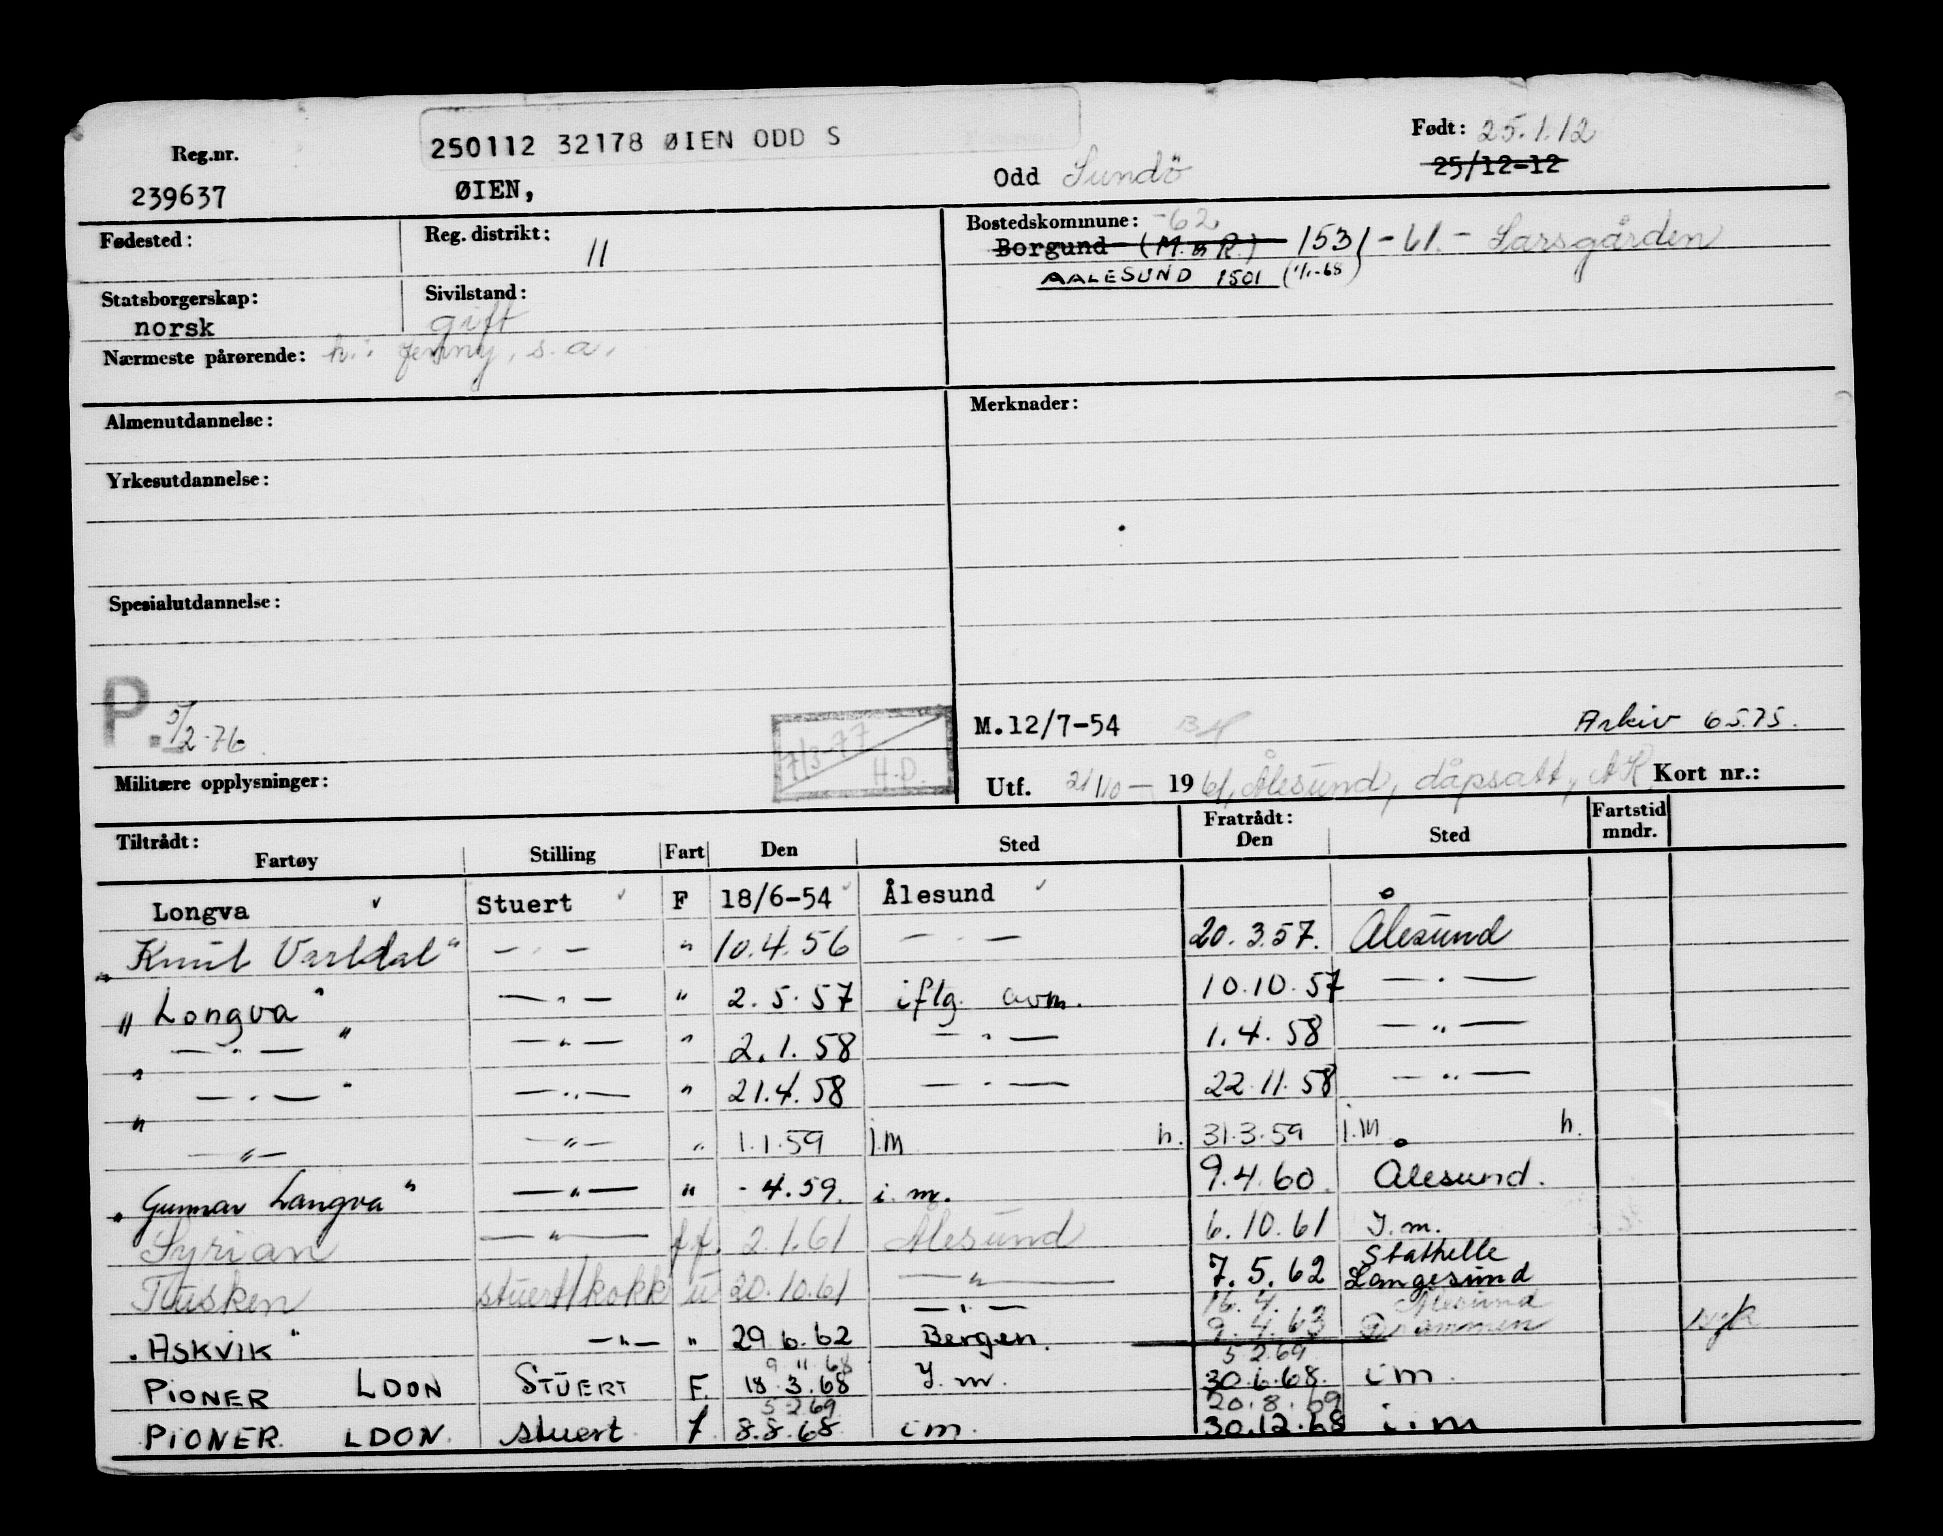 250112 32178 ØIEN ODD S
Født: 25.1.12
25/12-12
Reg.nr.
239637
ØIEN,
Odd Sundö
Fødested:
Reg. distrikt: 11
Bostedskommune: -62
Borgund (M. & R.) 1531 -61.- Larsgården
AALESUND 1501 (1/1-68)
Statsborgerskap: norsk
Sivilstand: gift
Nærmeste pårørende: h.: Jenny, s.a.
Almenutdannelse:
Merknader:
Yrkesutdannelse:
Spesialutdannelse:
P. 5/2-76.
7/3-77 H.D.
M.12/7-54
Arkiv 6575.
Militære opplysninger:
Utf. 21/10 - 1961, Ålesund, dåpsatt, Kort nr.:
Tiltrådt: Fartøy Stilling Fart Den Sted Fratrådt: Den Sted Fartstid mndr.
Longva Stuert F 18/6-54 Ålesund
"Knut Vartdal" — " — " 10.4.56 — " — 20.3.57. Ålesund
"Longva" — " — " 2.5.57 iflg. avm. 10.10.57 — " —
" — " — " — " — " 2.1.58 — " — 1.4.58 — " —
" — " — " — " — " 21.4.58 — " — 22.11.58 — " —
" — " — — " — " 1.1.59 i.m h. 31.3.59 i.m h.
"Gunnar Langva" — " — " - 4.59. i.m. 9.4.60. Ålesund.
Syrian — " — ff. 2.1.61 Ålesund 6.10.61 I.m.
Tusken stuert/kokk u 20.10.61 — " — 7.5.62 Stathelle Langesund
— " — 16.4. Ålesund
"Askvik" — " — " 29 6.62 Bergen. 9.4.63 Drammen
9 11 68 5 2.69
PIONER LDON STUERT F. 18.3.68 I.m. 30.6.68. i m.
5 2 69 20.8.69
PIONER. LDON. stuert. f. 8.8.68. i m. 30.12.68 i.m